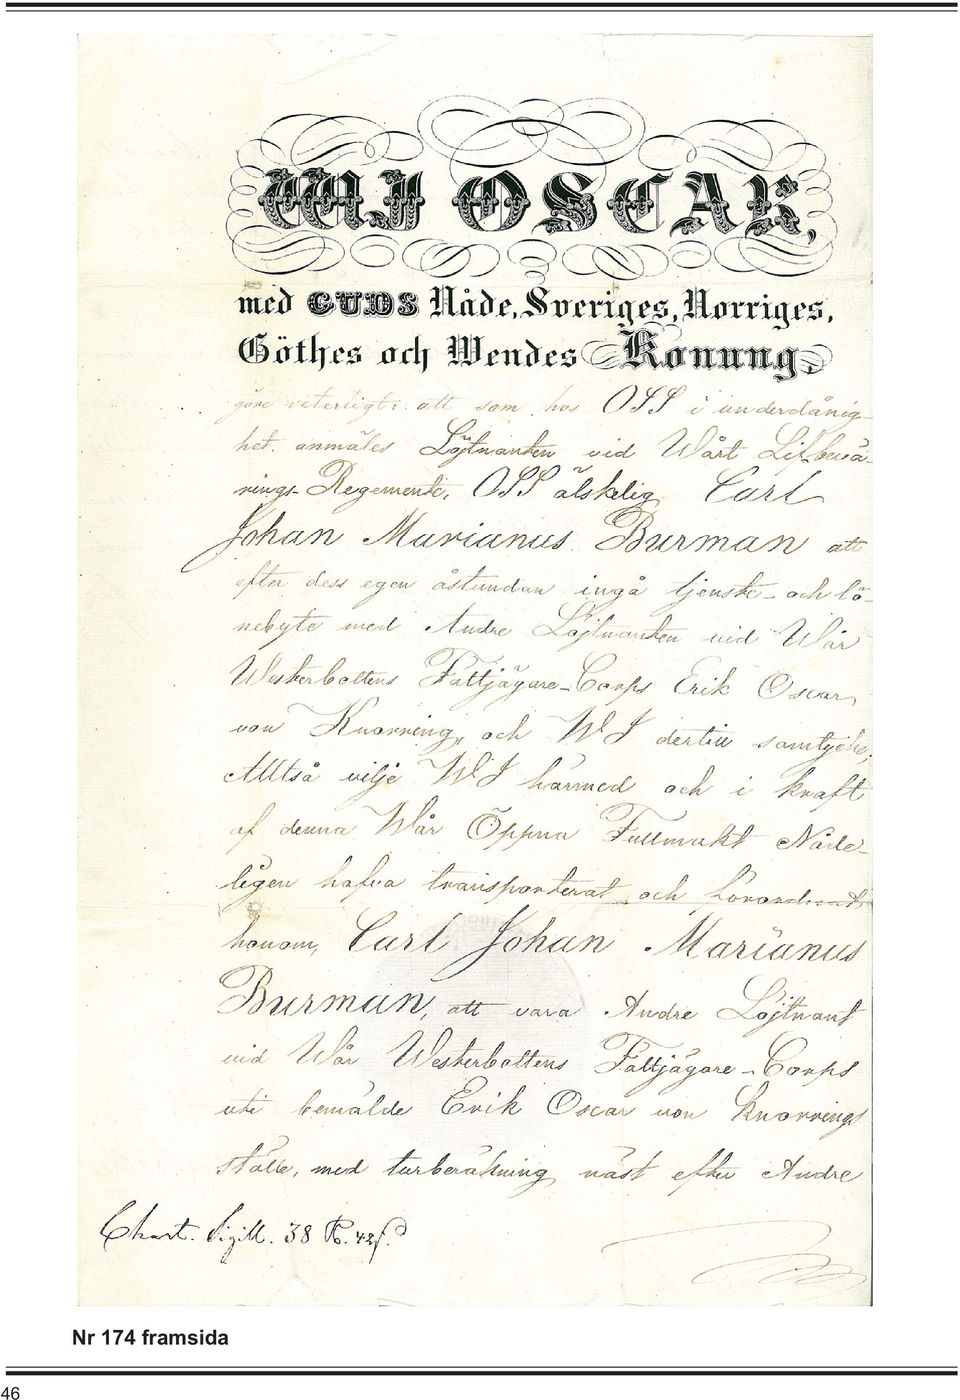 WI OSCAR,
med GUDS Nåde, Sveriges, Norriges,
Göthes och Wendes Konung,
göre veterligt: att som hos OSS i underdånig-
het anmäles Löjtnanten vid Wårt Lifbevä-
rings-Regemente, OSS älskelig Carl
Johan Marianus Burman att
efter dess egen åstundan ingå tjenste- och lö-
nebyte med Andre Löjtnanten vid Wår
Westerbottens Fältjägare-Corps Erik Oscar
von Knorring, och WI dertill samtycke;
Alltså vilje WI härmed och i kraft
af denna Wår Öppna Fullmakt Nåde-
ligen hafva transporterat och förordnat
honom, Carl Johan Marianus
Burman, att vara Andre Löjtnant
vid Wår Westerbottens Fältjägare-Corps
uti bemälde Erik Oscar von Knorrings
ställe, med turberäkning näst efter Andre
Chart. Sigill. 38 R. 42 f.
Nr 174 framsida
46